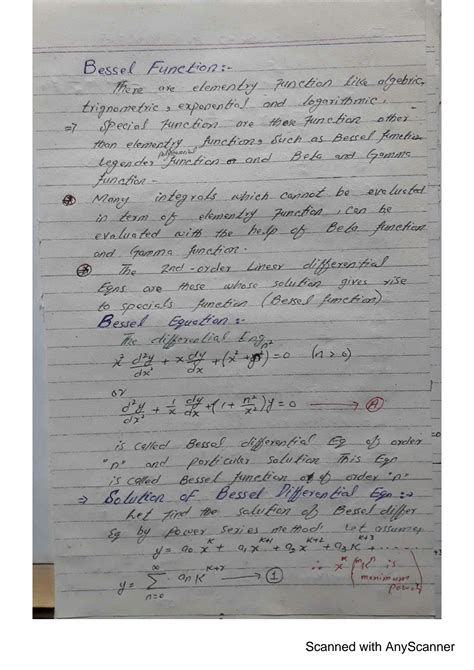 Bessel Function:-
There are elementry function like algebric,
trignometric, exponential and logarithmic,
=> Special function are those function other
than elementry functions, such as Bessel function
polynomial
Legender function and Beta and Gamma
function.
Many integrals which cannot be evaluated
in term of elementry function, can be
evaluated with the help of Beta function
and Gamma function.
The 2nd-order linear differential
Eqns are those whose solution gives rise
to specials function (Bessel function)
Bessel Equation:-
The differential Eng
x² d²y/dx² + x dy/dx + (x² + n²) = 0 (n > 0)
or
d²y/dx² + 1/x dy/dx + (1 + n²/x²)y = 0 → (A)
is called Bessal differential Eq of order
"n" and particular solution This Eqn
is called Bessel function of order "n"
=> Solution of Bessel Differential Eqn:-
Let find the solution of Bessel differ
Eq by power series method. Let assume
y = a₀x^k + a₁x^{k+1} + a₂x^{k+2} + a₃x^{k+3} + ......
y = Σ_{n=0}^{∞} aₙ x^{k+r} → (1)
is
minimum
power
Scanned with AnyScanner